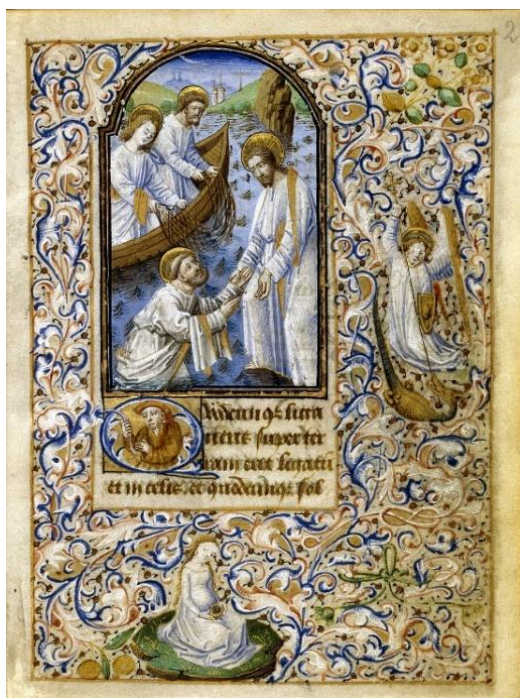 2
Quodcunqꝫ liga
ueris super ter
ram erit ligatū
et in celis et quodcunqꝫ sol